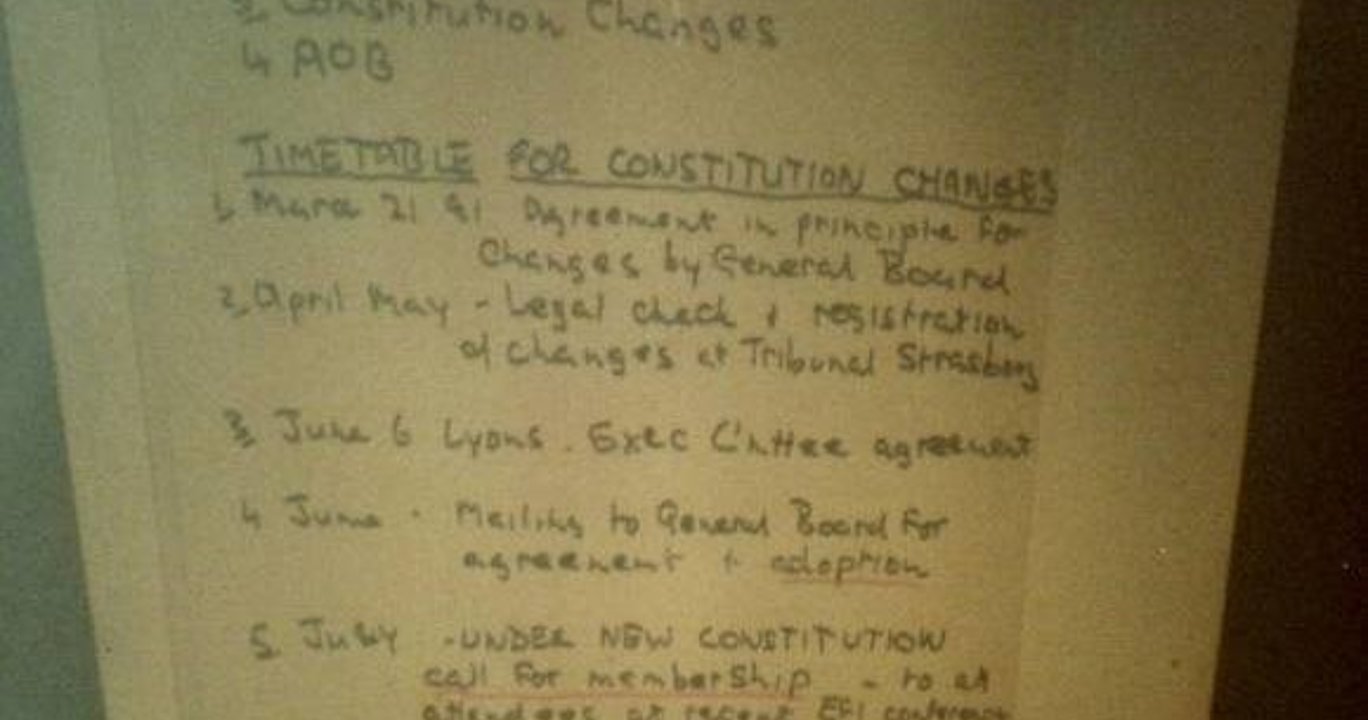 3. Constitution Changes
4 AOB
TIMETABLE FOR CONSTITUTION CHANGES
1. March 21 91 Agreement in principle for
Changes by General Board
2. April May - Legal check + registration
of changes at Tribunal Strasbourg
3 June 6 Lyons. Exec C'ttee agreement
4 June - Mailing to General Board for
agreement + adoption
5. July - UNDER NEW CONSTITUTION
call for membership - to all
attendees at recent conference